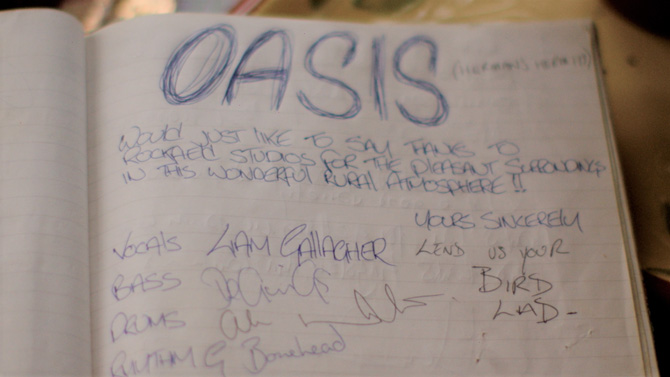 OASIS
WOULD JUST LIKE TO SAY THANKS TO
ROCKFIELD STUDIOS FOR THE PLEASANT SURRONDINGS
IN THIS WONDERFUL RURAL ATMOSPHERE!!
YOURS SINCERELY
VOCALS LIAM GALLAGHER
LEND US YOUR
BASS
BIRD
DRUMS
LAD-
RHYTHM G Bonehead